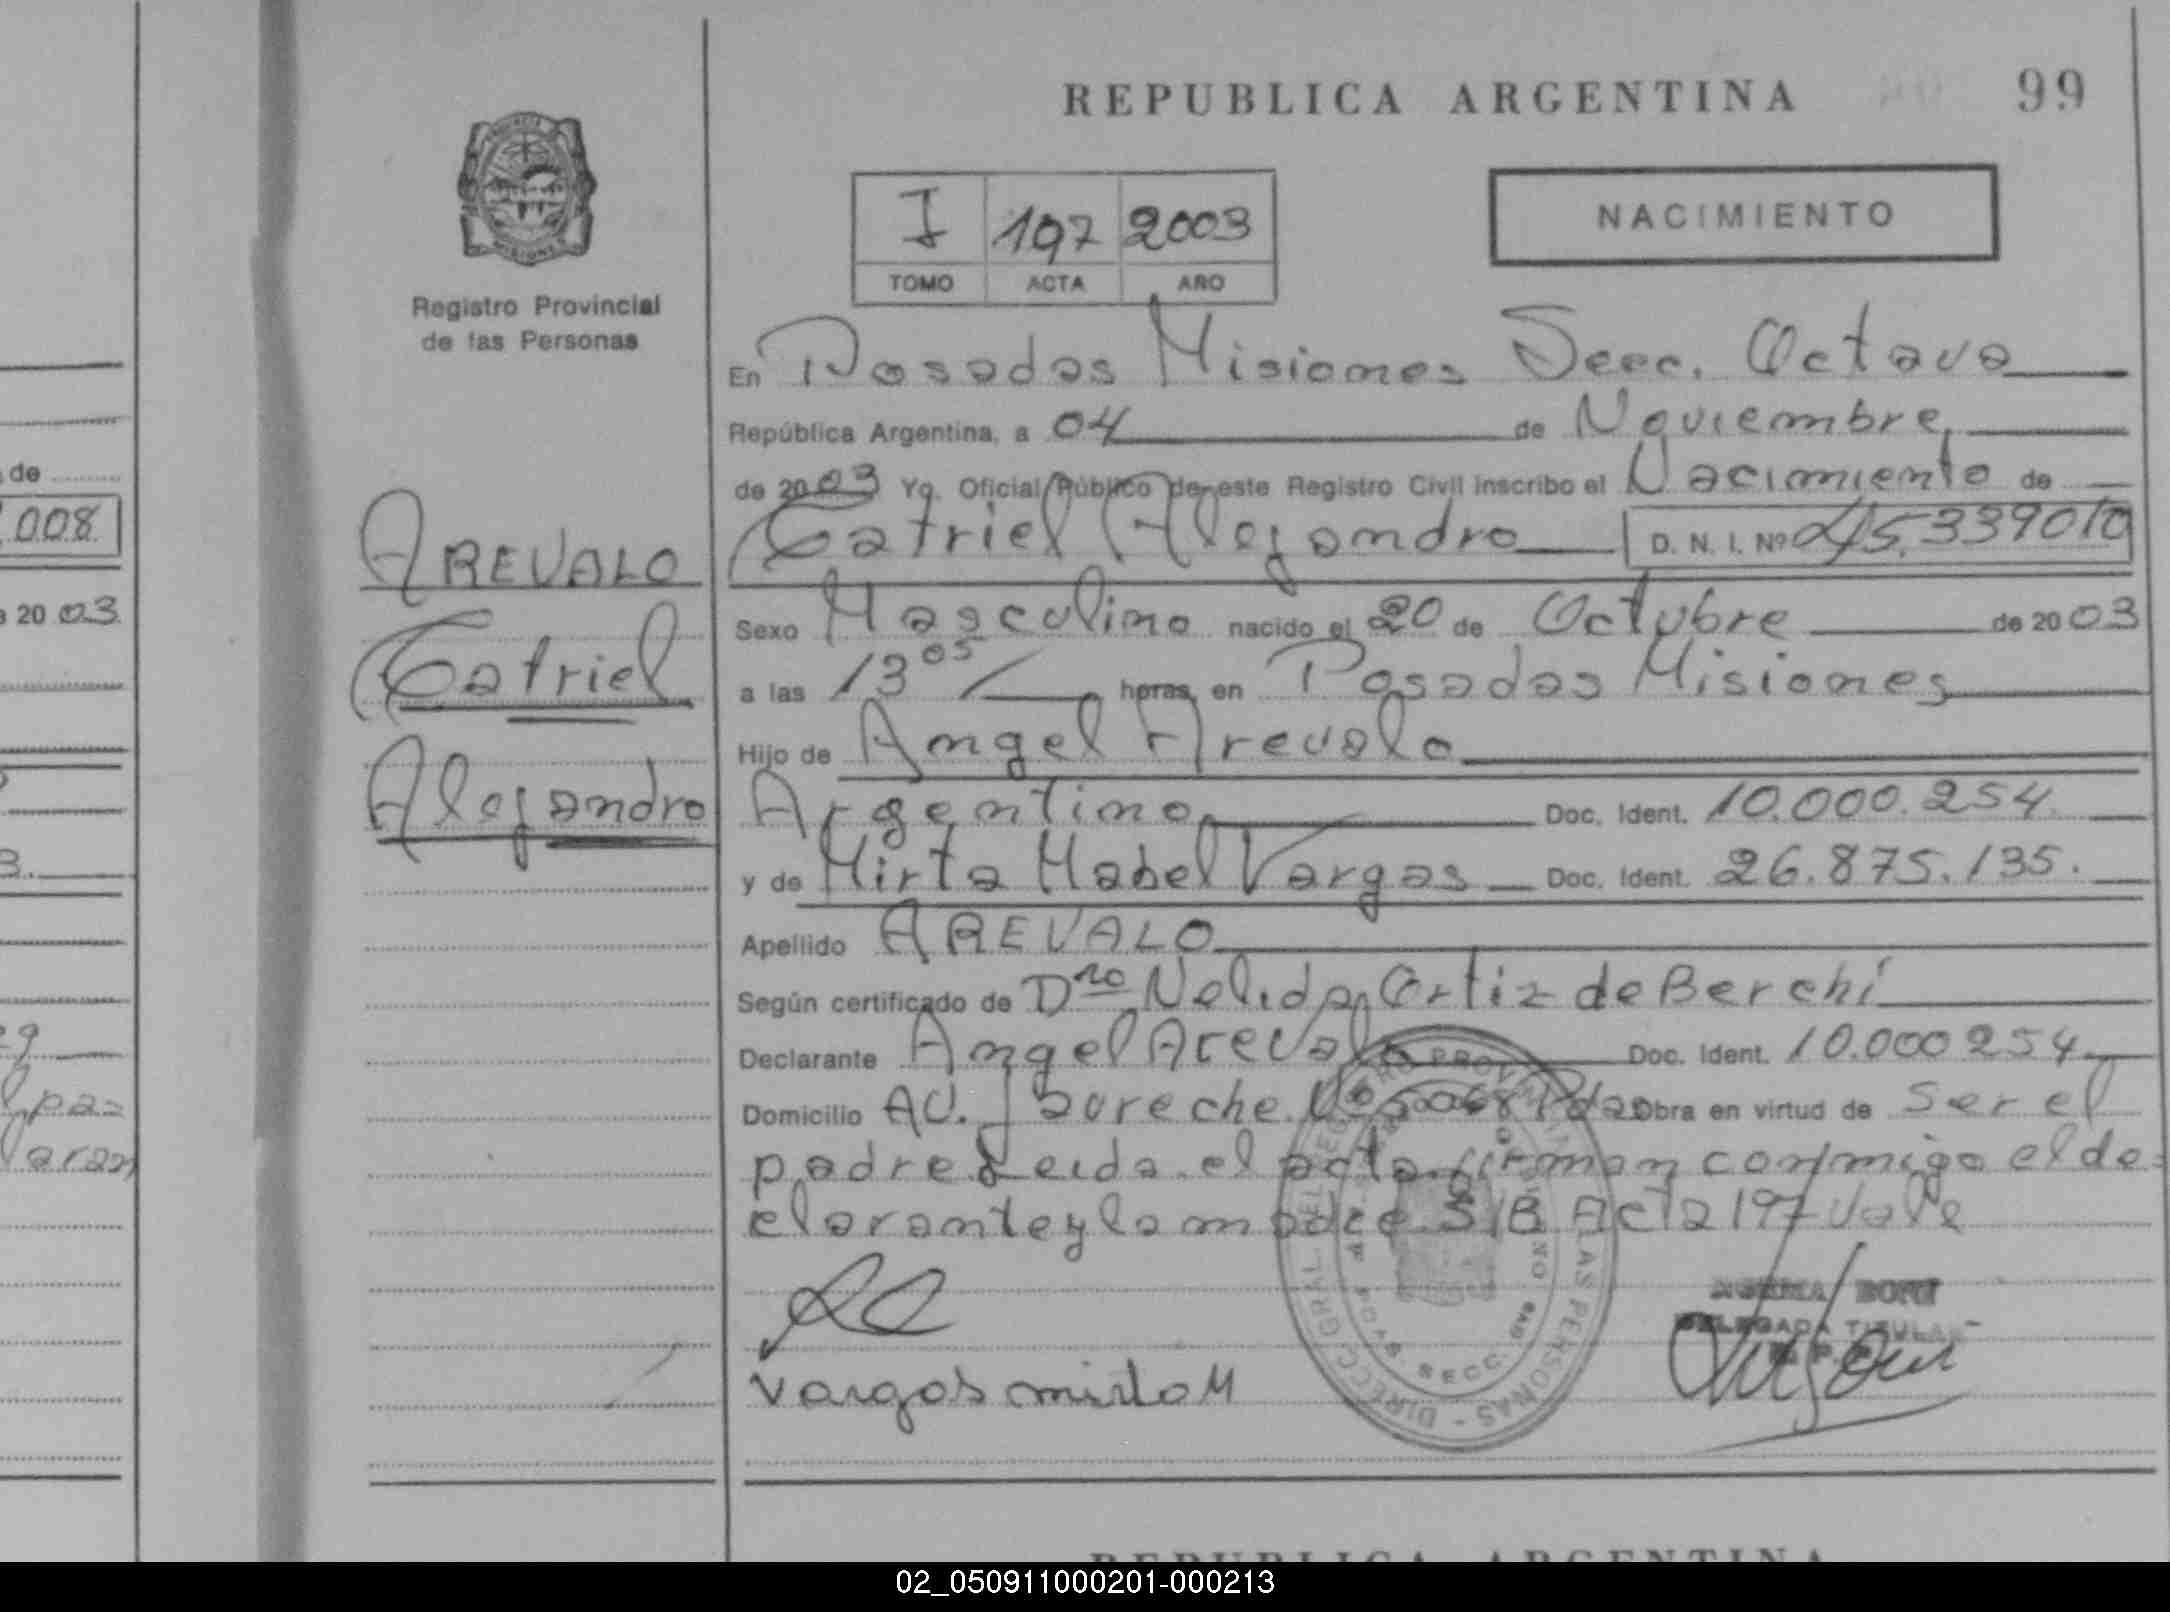 REPUBLICA ARGENTINA
99
I 197 2003
TOMO ACTA AÑO
NACIMIENTO
Registro Provincial
de las Personas
En Posadas Misiones Secc. Octava
República Argentina, a 04 de Noviembre
de 2003 Yo. Oficial Público de este Registro Civil inscribo el Nacimiento de
Catriel Alejandro D. N. I. Nº 45.339010
Sexo Masculino nacido el 20 de Octubre de 2003
a las 13 05 horas, en Posadas Misiones
Hijo de Angel Arevalo
Argentino Doc. Ident. 10.000.254
y de Mirta Mabel Vargas Doc. Ident. 26.875.135.
Apellido AREVALO
Según certificado de Dra Nelida Ortiz de Berchi
Declarante Angel Arevalo Doc. Ident. 10.000254
Domicilio AV. Jaureche Obra en virtud de ser el
padre Leida el acta firman conmigo el de
clarante y la madre S/B Acta 197 Vale
Vargas Mirta M
DELEGADA TITULAR
AREVALO
Catriel
Alejandro
de
008
20 03
02_050911000201-000213